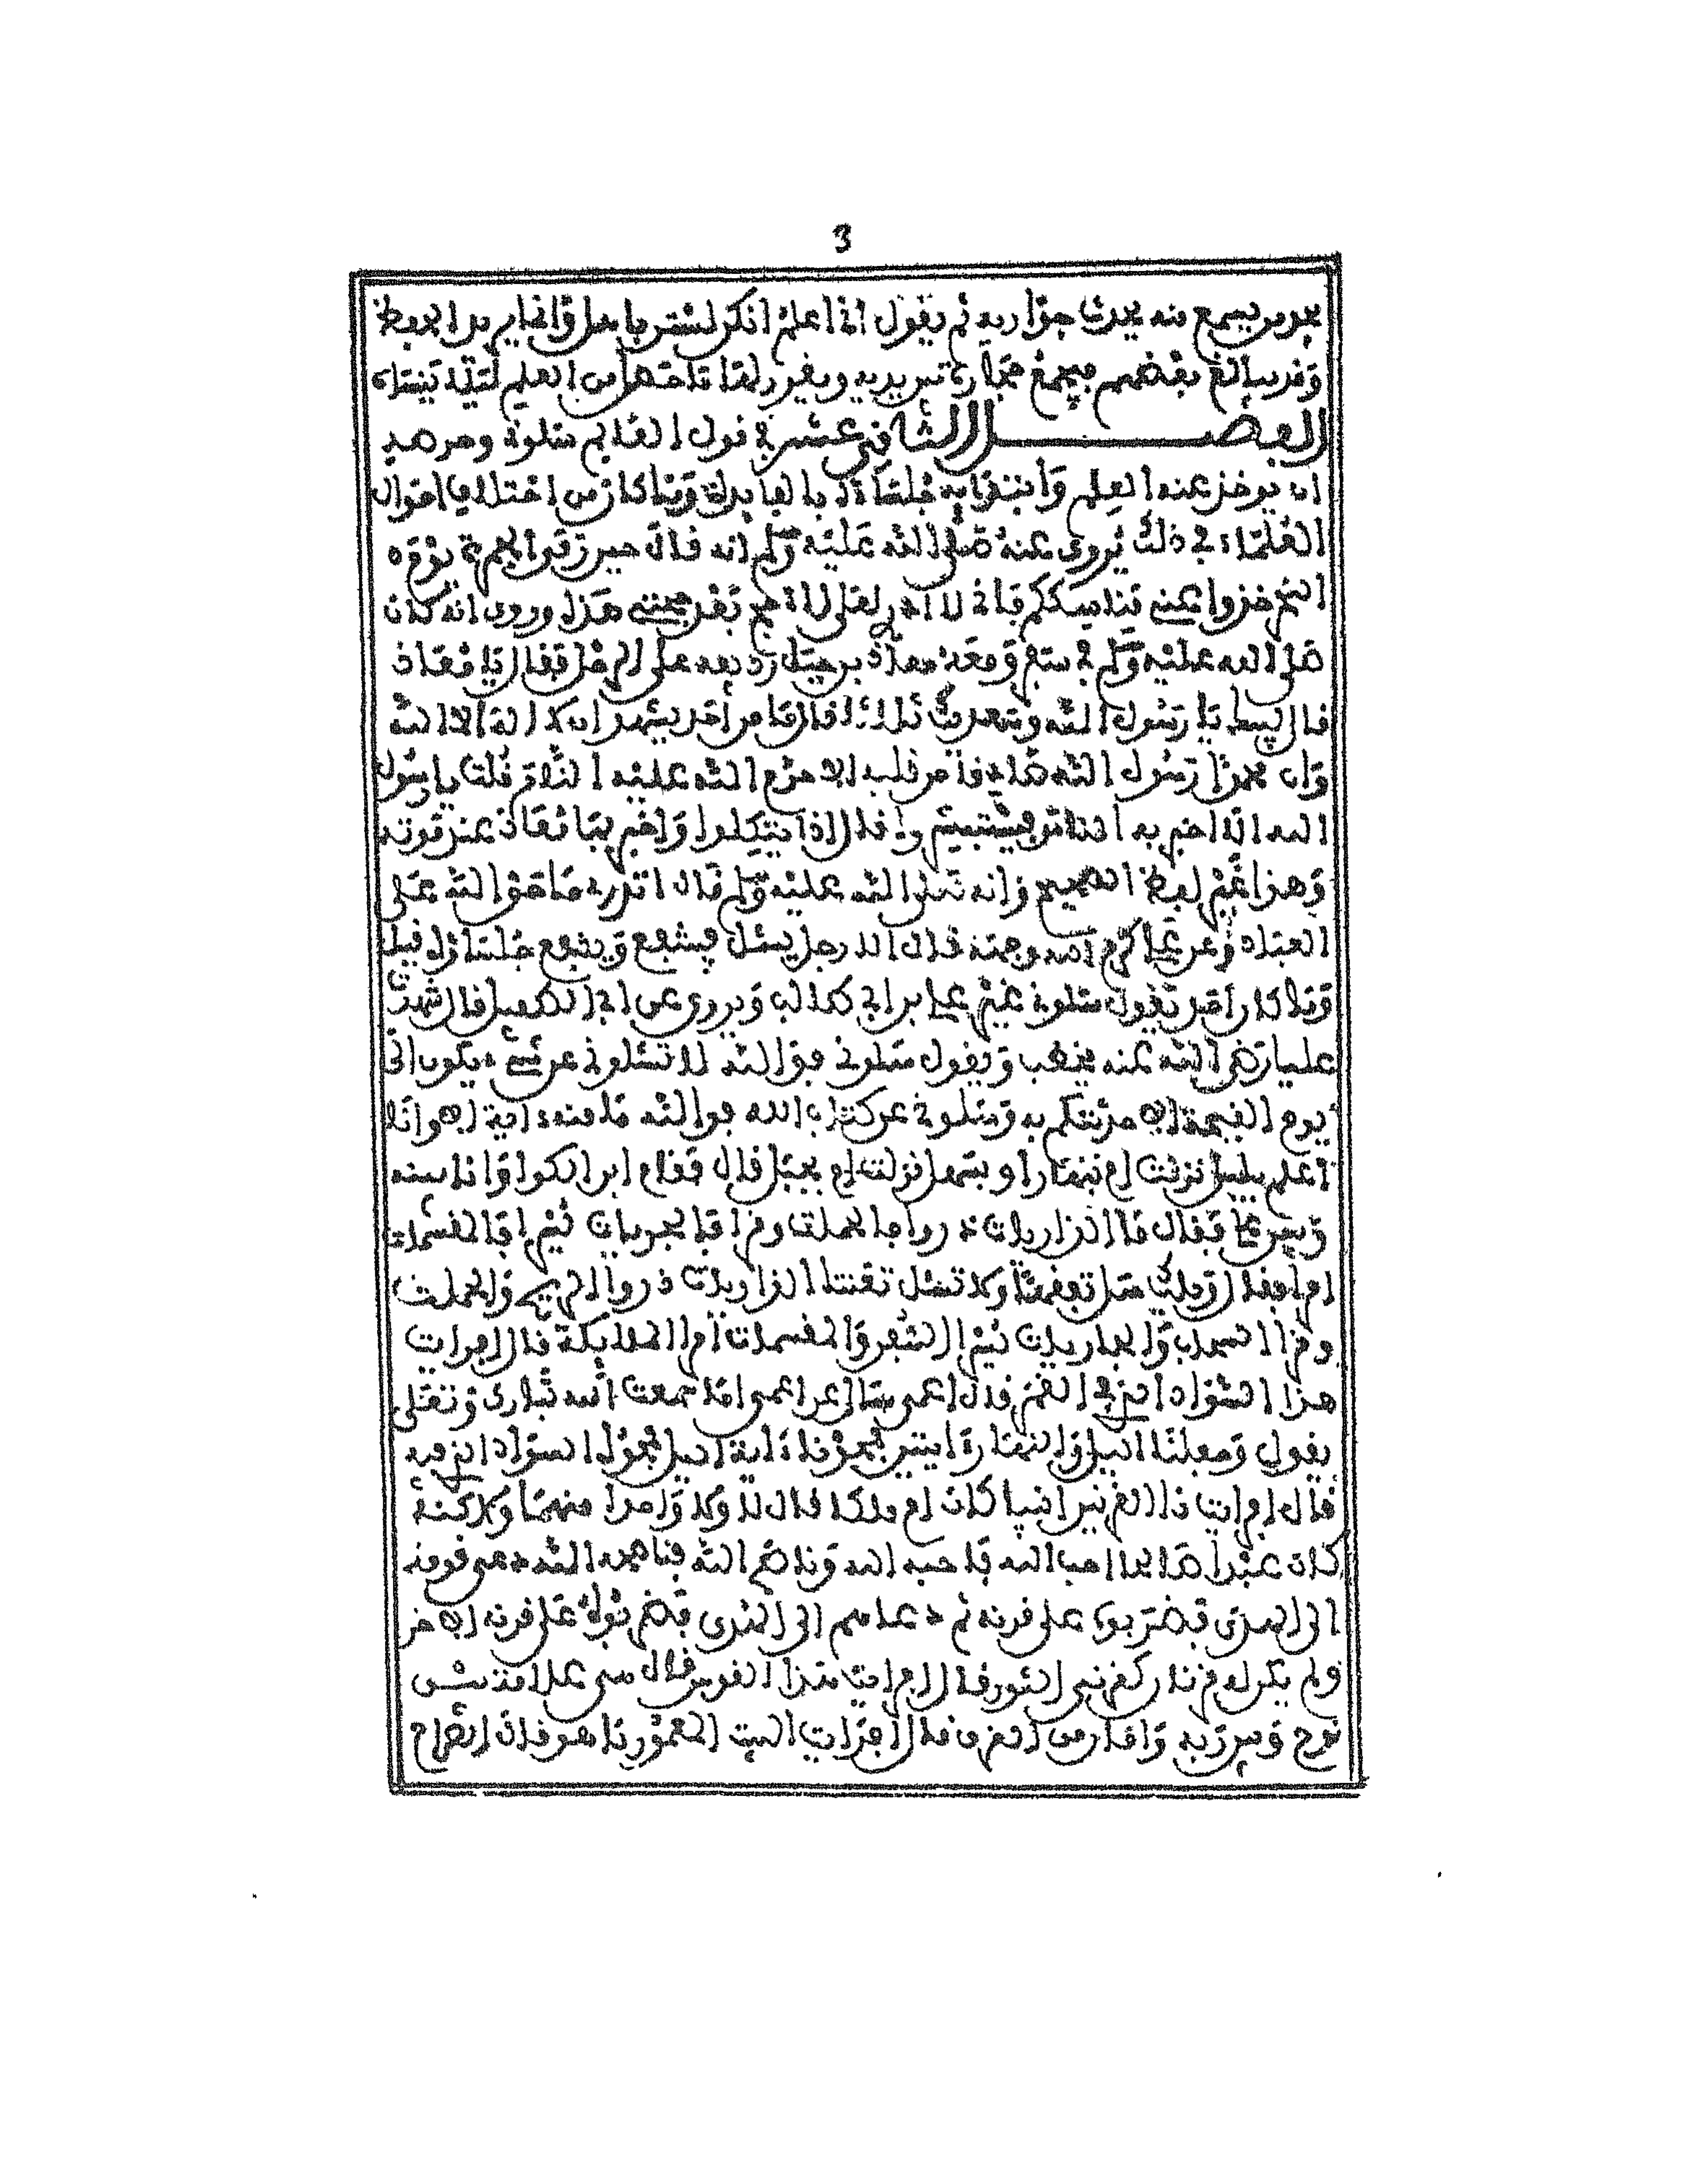 3
يجد من يسمع منه يحدث جواريه ثم يقول اني اعلم انكن لستن باهل وانما يريد الحفظ
وقد يبالغ بعضهم فيجمع بين يديه
الفصل الثاني عشر في قول العالم سلوني وحرصه
ان يوخذ عنه العلم وابتدائه جلساءه بالفايدة وما كان من اختلاف احوال
العلماء في ذلك يروى عنه صلى الله عليه وسلم انه قال حين رمى الجمرة يوم
النحر خذوا عني مناسككم فاني لا ادري لعلي لا احج بعد حجتي هذه وروى انه كان
صلى الله عليه وسلم في سفر ومعه معاذ بن جبل رديفه على الرحل فقال يا معاذ
قال لبيك يا رسول الله وسعديك ثلاثا قال ما من احد يشهد ان لا اله الا الله
وان محمدا رسول الله صادقا من قلبه الا حرم الله عليه النار قلت يا رسول
الله الا اخبر به الناس فيستبشروا قال اذا يتكلوا واخبر بها معاذ عند موته
وهذا غير لفظ الصحيح وانه صلى الله عليه وسلم قال اتدري ما حق الله على
العباد وعن علي كرم الله وجهه قال الا رجل يسئل فينتفع وينفع جلساءه قيل
وما كان احد يقول سلوني غير علي بن ابي طالب ويروى عن ابي الطفيل قال شهدت
عليا رضي الله عنه يخطب ويقول سلوني فوالله لا تسئلوني عن شيء يكون الى
يوم القيمة الا حدثتكم به وسلوني عن كتاب الله فوالله ما منه ءاية الا وانا
اعلم بليل نزلت ام بنهار او بسهل نزلت ام بجبل قال فقام ابن الكوا وانا بينه
وبين علي فقال ما الذاريات ذروا فالحملت وقرا فالجريات يسرا فالمقسمات
امرا فقال ويلك سل تفقها ولا تسئل تعنتا الذاريات ذروا الريح والحملت
وقرا السحاب والجاريات يسرا السفن والمقسمات امرا الملايكة قال افرايت
هذا السواد الذي في القمر قال اعمى سال عن اعمى اما سمعت الله تبارك وتعلى
يقول وجعلنا اليل والنهار ءايتين فمحونا ءاية اليل فمحوه السواد الذي فيه
قال افرايت ذا القرنين انبيا كان ام ملكا قال لا ولا واحدا منهما ولاكنه
كان عبدا صالحا احب الله فاحبه الله وناصح الله فناصحه الله دعى قومه
الى الهدى فضربوه على قرنه ثم دعاهم الى الهدى فضربوه على قرنه الاخر
ولم يكن له قرنان كقرني الثور قال افرايت هذا القوس قال هي علامة بين
نوح وبين ربه وامان من الغرق قال افرايت البيت المعمور ما هو قال الضراح